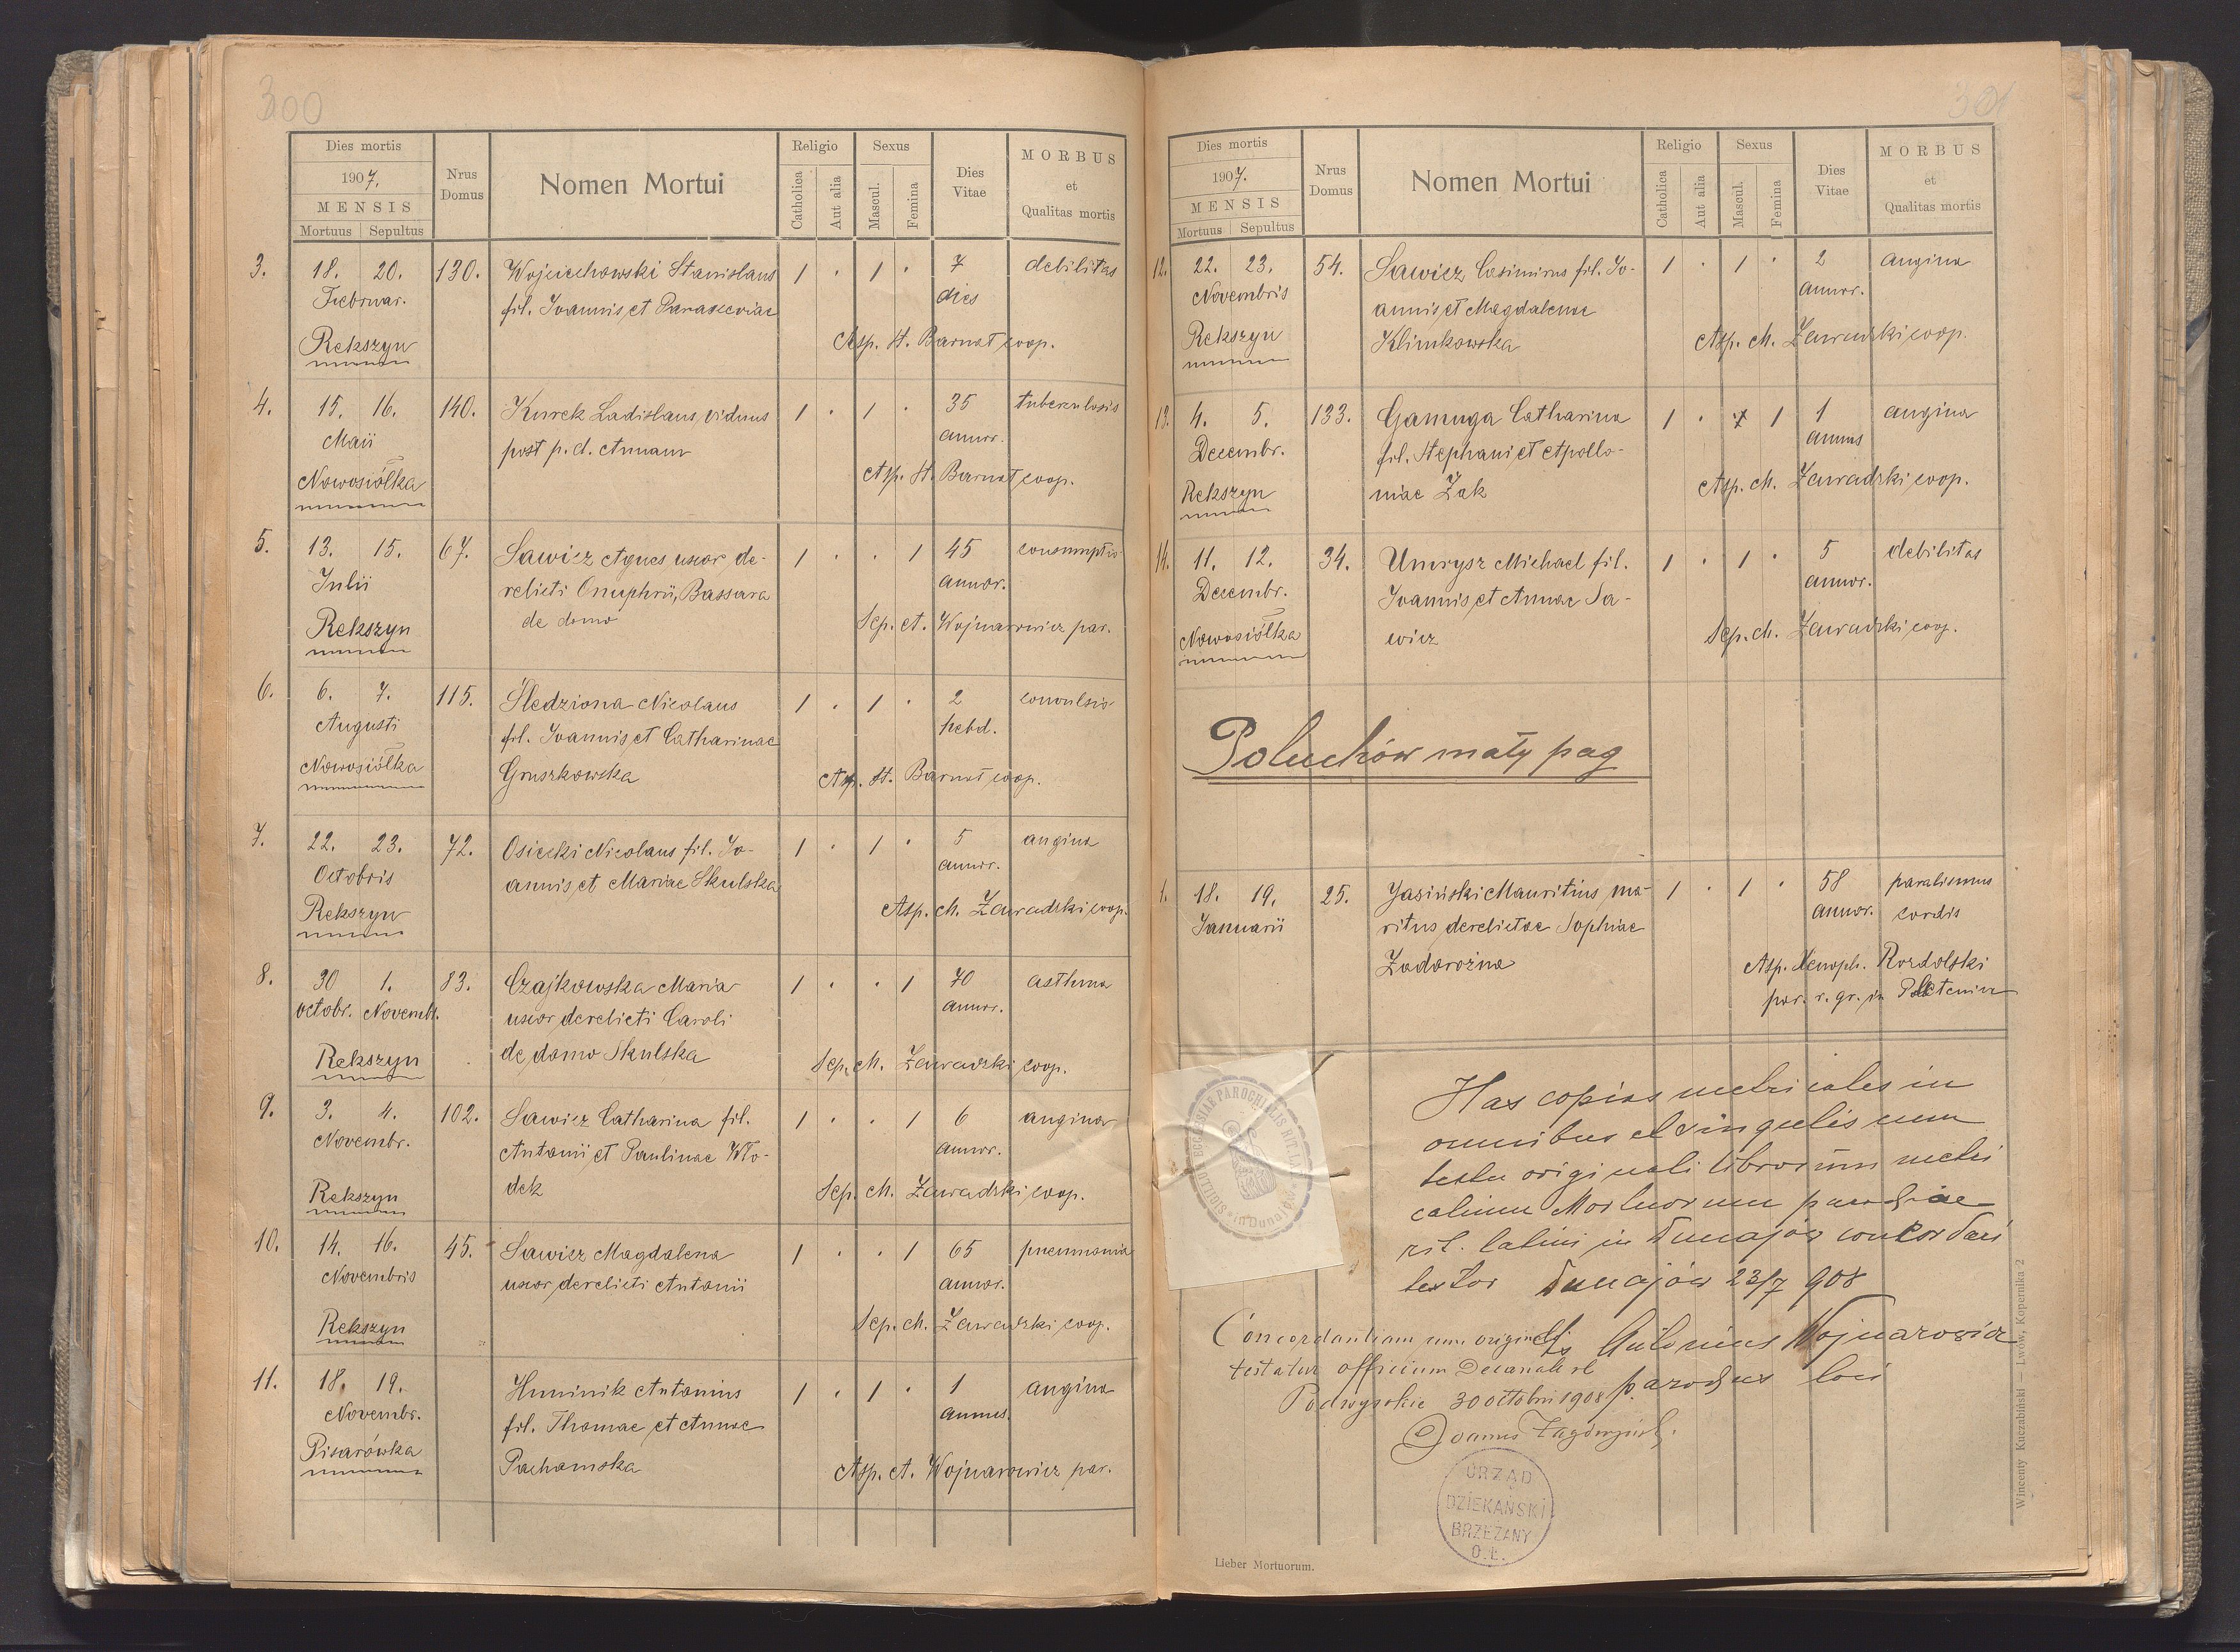 300
Dies mortis
1907.
MENSIS
Mortuus Sepultus
Nrus Domus
Nomen Mortui
Religio
Catholica
Aut alia
Sexus
Mascul.
Femina
Dies Vitae
MORBUS
et
Qualitas mortis
3. 18. 20. 130. Wojciechowski Stanislaus 1 . 1 . 7 debilitas
Februar. fil. Joannis et Parasceviae dies
Rekszyn Asp. St. Barnat coop.
4. 15. 16. 140. Kurek Ladislaus, viduus 1 . 1 . 35 tuberculosis
Maii post p. d. Annam annor.
Nowosiółka Asp. St. Barnat coop.
5. 13. 15. 67. Sawicz Agnes, uxor de- 1 . . 1 45 consumptio
Julii relicti Onuphrii, Bassara annor.
Rekszyn de domo Sep. A. Wojnarowicz par.
6. 6. 7. 115. Śledziona Nicolaus 1 . 1 . 2 convulsio
Augusti fil. Joannis et Catharinae hebd.
Nowosiółka Gruszkowska Asp. St. Barnat coop.
7. 22. 23. 72. Osiecki Nicolaus fil. Jo- 1 . 1 . 5 angina
Octobris annis et Mariae Skulska annor.
Rekszyn Asp. M. Zawadzki coop.
8. 30 1. 83. Czajkowska Maria 1 . . 1 70 asthma
octobr. Novembr. uxor derelicti Caroli annor.
Rekszyn de domo Skulska Sep. M. Zawadzki coop.
9. 3. 4. 102. Sawicz Catharina fil. 1 . . 1 6 angina
Novembr. Antonii et Paulinae Wło- annor.
Rekszyn dek Sep. M. Zawadzki coop.
10. 14. 16. 45. Sawicz Magdalena 1 . . 1 65 pneumonia
Novembris uxor derelicti Antonii annor.
Rekszyn Sep. M. Zawadzki coop.
11. 18. 19. Huminik Antonius 1 . 1 . 1 angina
Novembr. fil. Thomae et Annae annus.
Pisarówka Pachamska Asp. A. Wojnarowicz par.
301
Dies mortis
1907.
MENSIS
Mortuus Sepultus
Nrus Domus
Nomen Mortui
Religio
Catholica
Aut alia
Sexus
Mascul.
Femina
Dies Vitae
MORBUS
et
Qualitas mortis
12. 22. 23. 54. Sawicz Casimirus fil. Jo- 1 . 1 . 2 angina
Novembris annis et Magdalenae annor.
Rekszyn Klimkowska Asp. M. Zawadzki coop.
13. 4. 5. 133. Gamuga Catharina 1 . 1 1 angina
Decembr. fil. Stephani et Apollo- annus
Rekszyn niae Żak Asp. M. Zawadzki coop.
14. 11. 12. 34. Umrysz Michael fil. 1 . 1 . 5 debilitas
Decembr. Joannis et Annae Sa- annor.
Nowosiółka wicz Sep. M. Zawadzki coop.
Poluchów mały pag
1. 18. 19. 25. Jasiński Mauritius, ma- 1 . 1 . 58 paralismus
Januarii ritus derelictae Sophiae annor. cordis
Zadorożna Asp. Xenoph. Rozdolski
par. r. gr. in
Has copias metricales in
omnibus et singulis cum
textu originali librorum metri
calium Mortuorum parochiae
rit. latini in Dunajów concordari
testor Dunajów 23/7 908
Antonius Wojnarowicz
parochus loci
SIGILLUM ECCLESIAE PAROCHIALIS RIT. LAT. in Dunajów
Concordantiam cum originali
testatur officium Decanale
Podwysokie 30 octobris 1908
Joannes
URZĄD
DZIEKAŃSKI
BRZEŻANY
O. Ł.
Lieber Mortuorum.
Wincenty Kuczabiński — Lwów, Kopernika 2